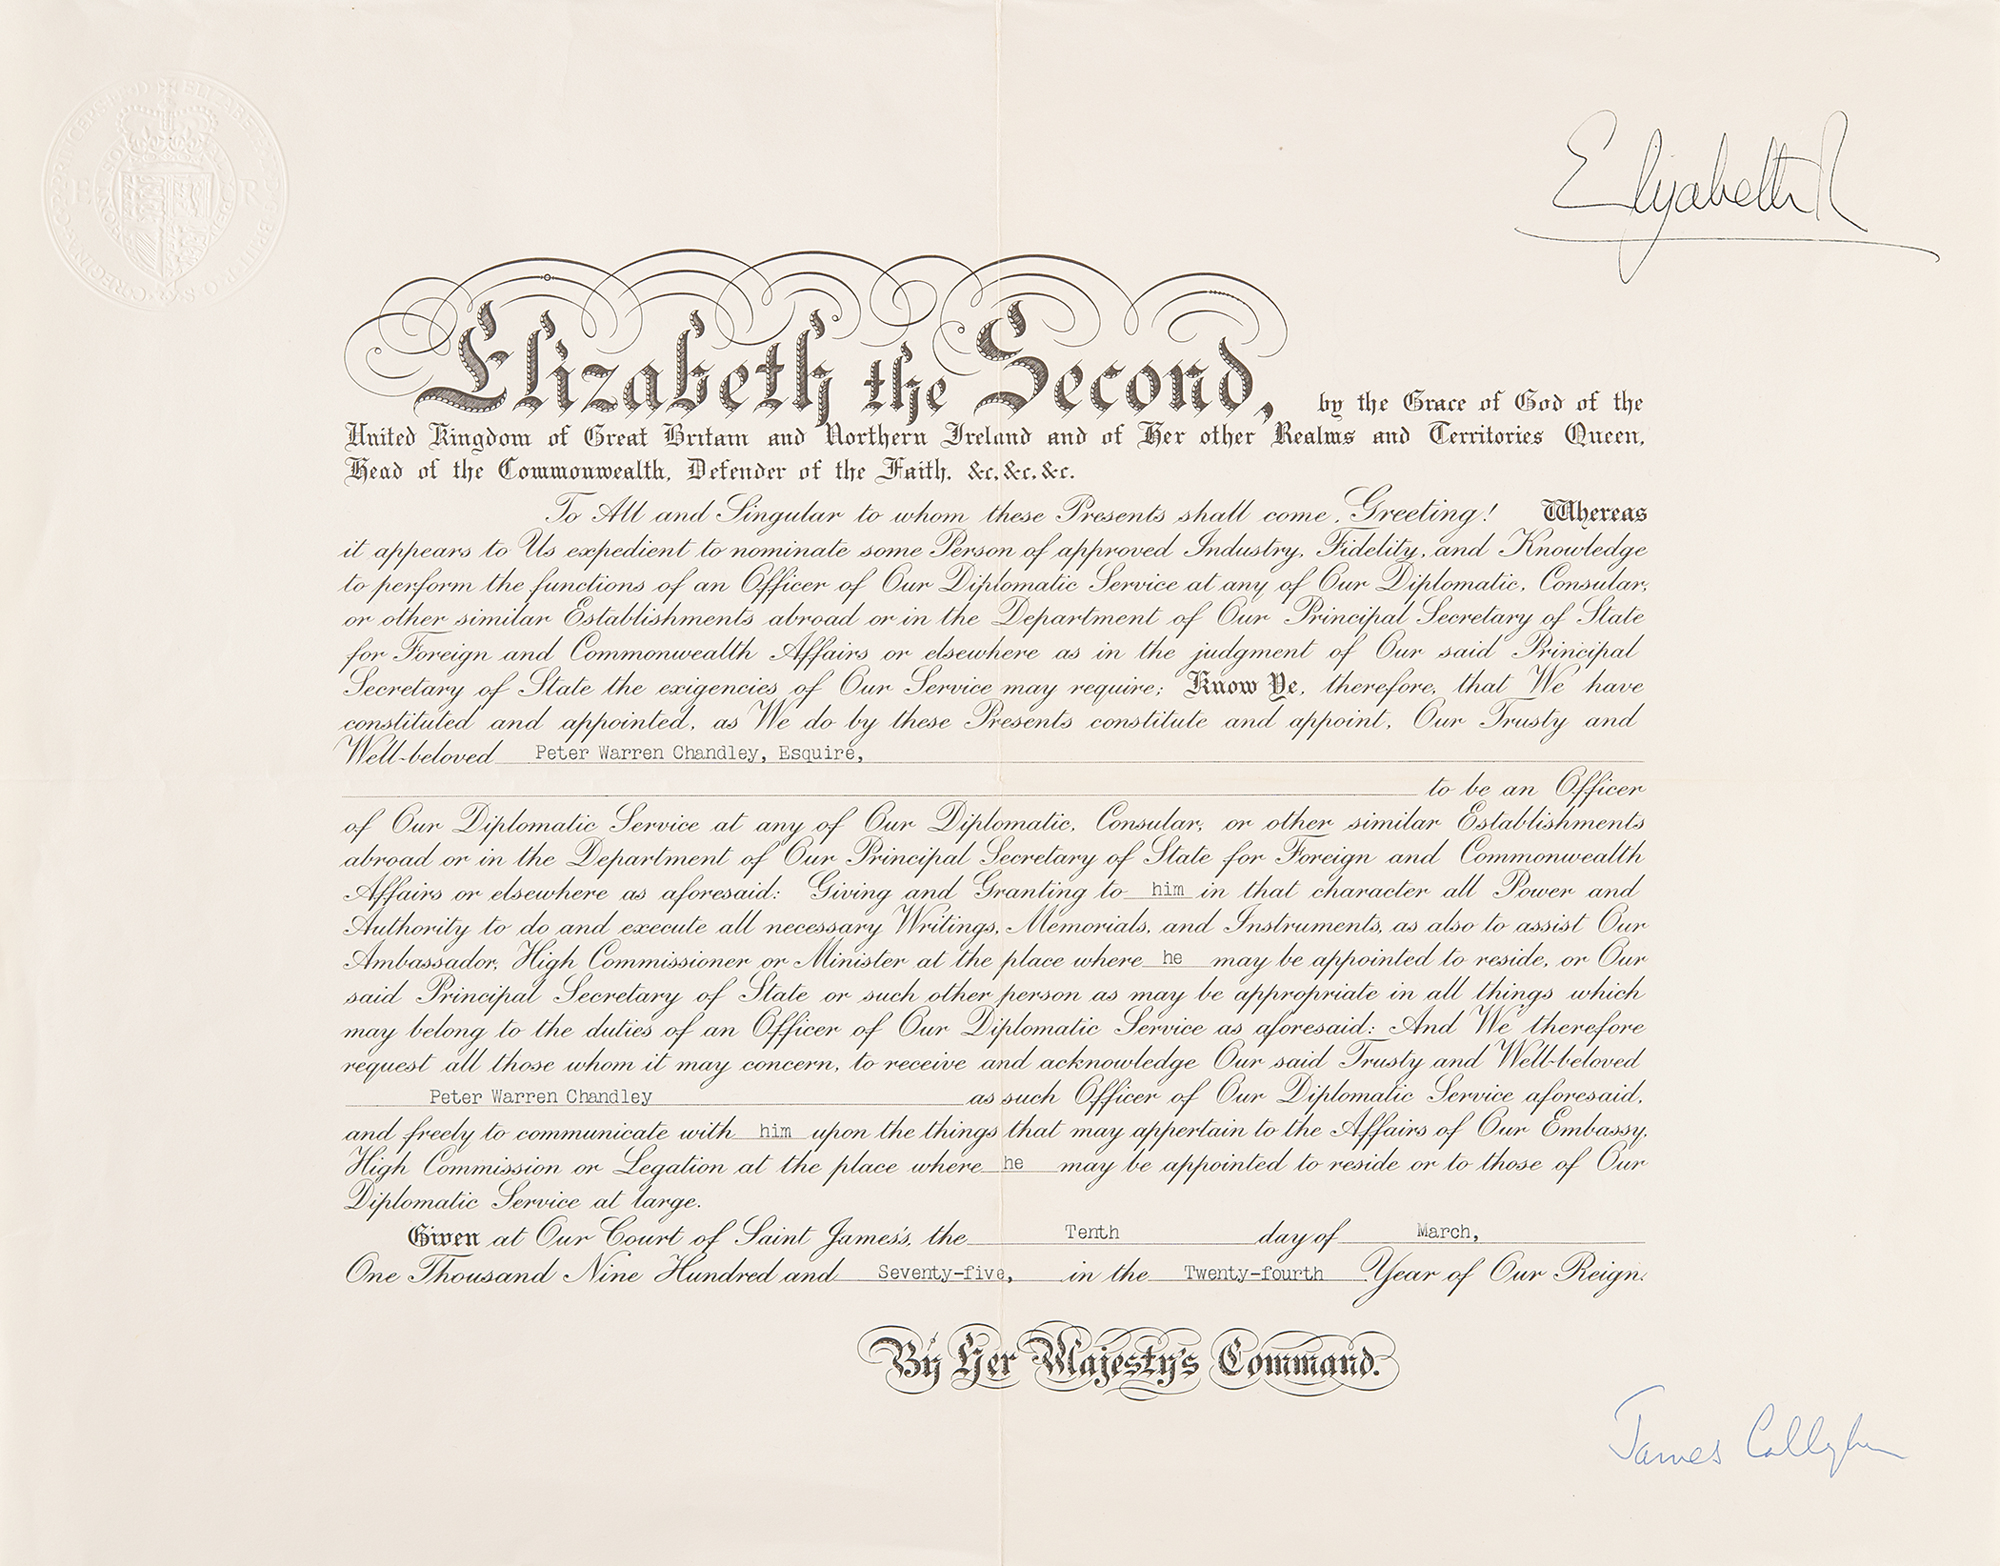 Elizabeth R
E R
Elizabeth the Second, by the Grace of God of the
United Kingdom of Great Britain and Northern Ireland and of Her other Realms and Territories Queen,
Head of the Commonwealth, Defender of the Faith, &c, &c, &c.
To All and Singular to whom these Presents shall come, Greeting! Whereas
it appears to Us expedient to nominate some Person of approved Industry, Fidelity, and Knowledge
to perform the functions of an Officer of Our Diplomatic Service at any of Our Diplomatic, Consular,
or other similar Establishments abroad or in the Department of Our Principal Secretary of State
for Foreign and Commonwealth Affairs or elsewhere as in the judgment of Our said Principal
Secretary of State the exigencies of Our Service may require; Know Ye, therefore, that We have
constituted and appointed, as We do by these Presents constitute and appoint, Our Trusty and
Well-beloved Peter Warren Chandley, Esquire,
to be an Officer
of Our Diplomatic Service at any of Our Diplomatic, Consular, or other similar Establishments
abroad or in the Department of Our Principal Secretary of State for Foreign and Commonwealth
Affairs or elsewhere as aforesaid: Giving and Granting to him in that character all Power and
Authority to do and execute all necessary Writings, Memorials, and Instruments, as also to assist Our
Ambassador, High Commissioner or Minister at the place where he may be appointed to reside, or Our
said Principal Secretary of State or such other person as may be appropriate in all things which
may belong to the duties of an Officer of Our Diplomatic Service as aforesaid: And We therefore
request all those whom it may concern, to receive and acknowledge Our said Trusty and Well-beloved
Peter Warren Chandley as such Officer of Our Diplomatic Service aforesaid,
and freely to communicate with him upon the things that may appertain to the Affairs of Our Embassy,
High Commission or Legation at the place where he may be appointed to reside or to those of Our
Diplomatic Service at large.
Given at Our Court of Saint James's, the Tenth day of March,
One Thousand Nine Hundred and Seventy-five, in the Twenty-fourth Year of Our Reign.
By Her Majesty's Command.
James Callaghan